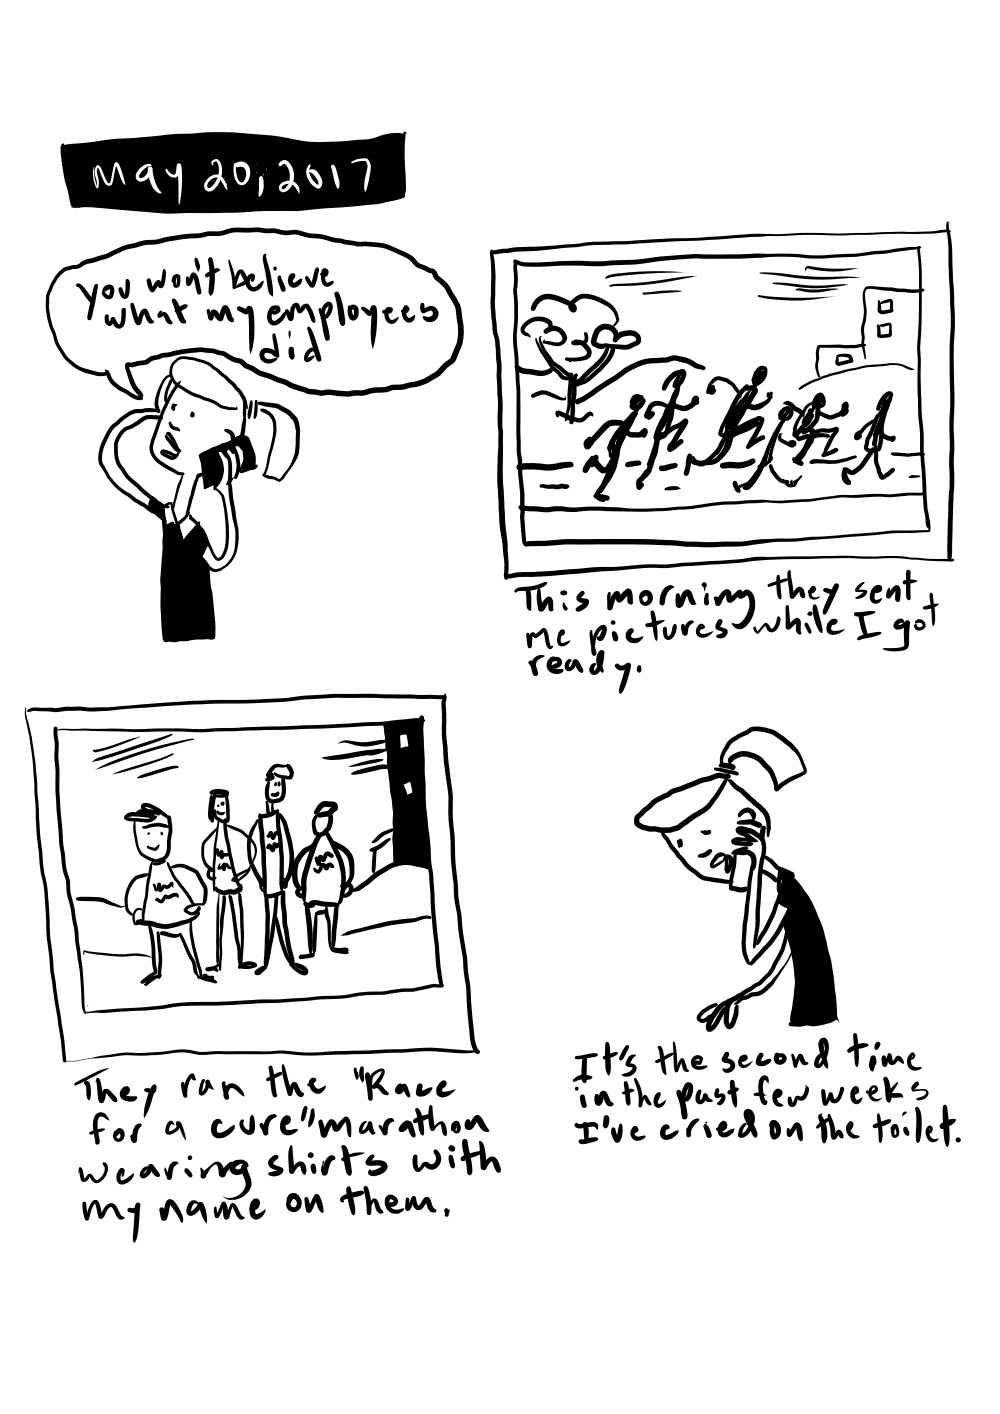 May 20, 2017
You won't believe
what my employees
did
This morning they sent
me pictures while I got
ready.
They ran the "Race
for a cure" marathon
wearing shirts with
my name on them.
It's the second time
in the past few weeks
I've cried on the toilet.